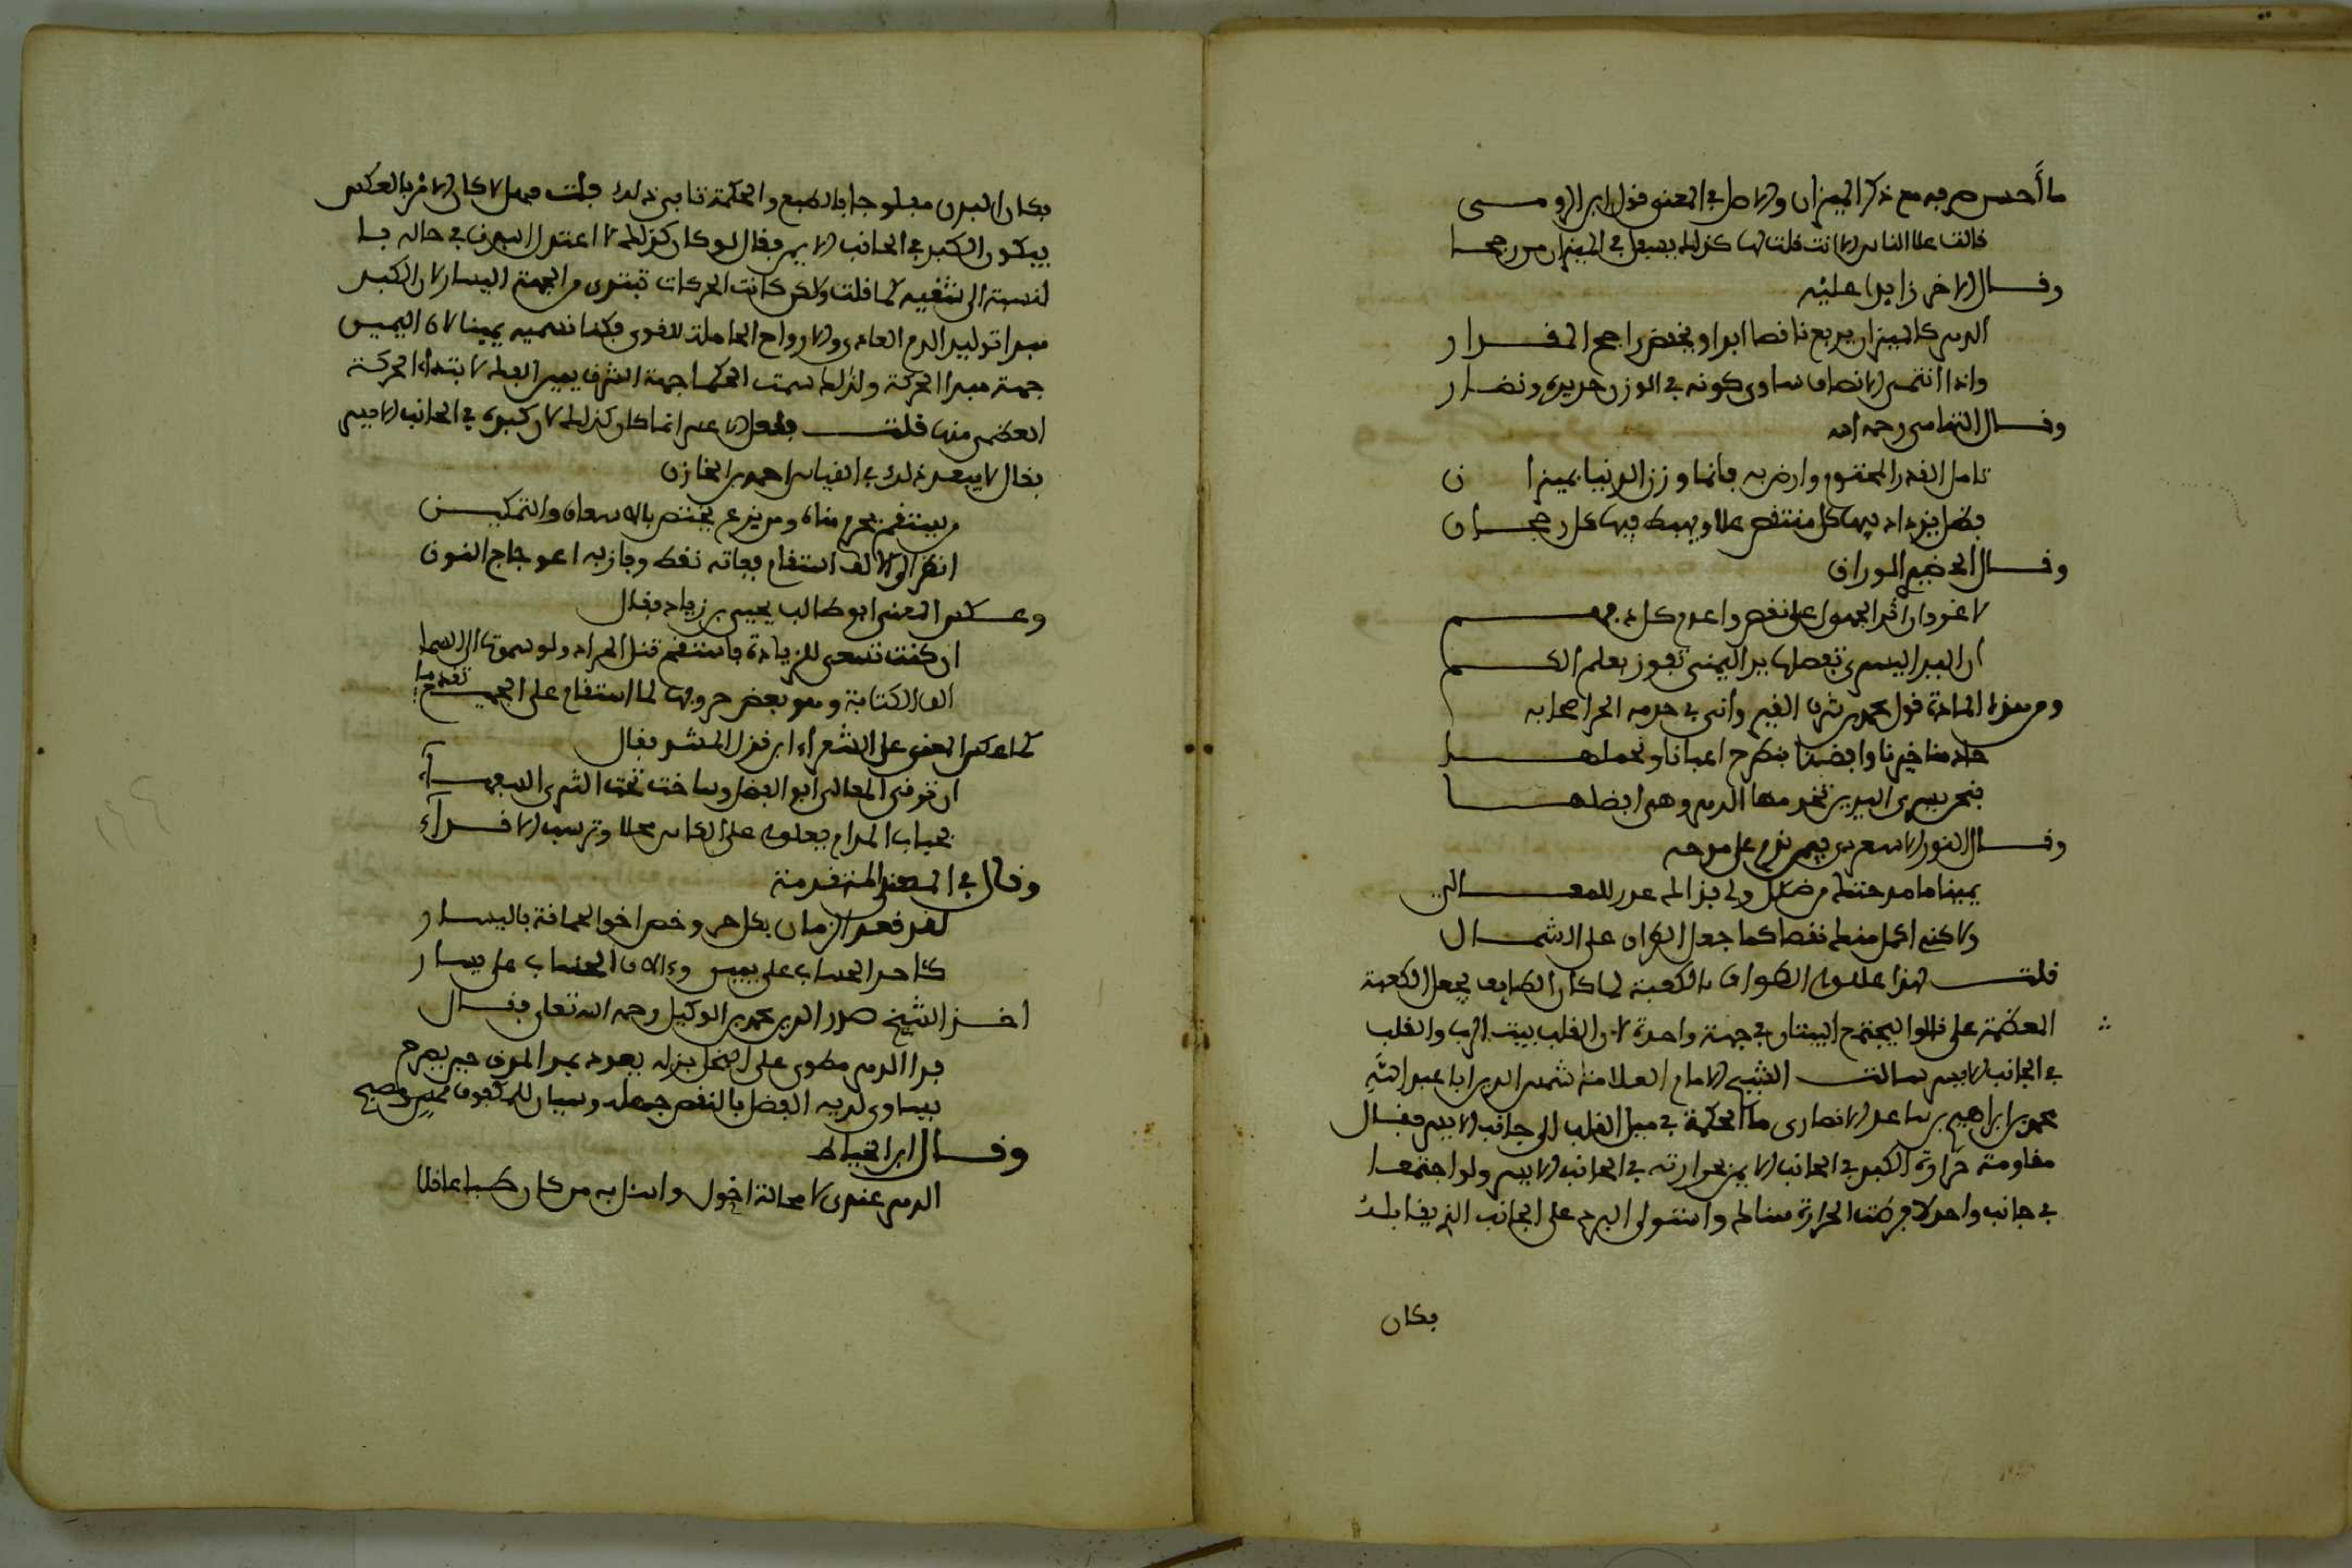 ما أحسن صرفه مع ذكر الميزان والاصل في المعنى قول ابن الرومي
قالت علا الناس الا انت قلت لها كذلك يسفل في الميزان من رجحا
وقال الاخر زايدا عليه
الدهر كالميزان يرفع ناقصا ابدا ويخفض راجح المقدار
واذا انتحى الانصاف ساوى كونه في الوزن حديده ونضار
وقال التهامي رحمه الله
تامل القدر المحتوم وارض به فانما وزن الدنيا بميزان
فظل يزداد فيها كل منتقص علا ويهبط فيها كل رجحان
وقال الحضيري الوراق
لا غرو ان اثرا الجهول على نقص واعدم كل ذي فهم
ان اليد اليسرى تفضلها يد اليمنى تفوز بعلم الكم
ومن هذه المادة قول محمد بن شرف القيرواني في خدمه الحر اصحابه
خادمنا خيرنا وافضلنا يطرح اعباءنا ونحملها
فنحن يسرى اليدين تخدمها الدهر وهي افضلها
وقال النور الاسعردي فيمن ندم على مدحه
يمينا ما مدحتك من ضلال ولي بذاك عذر للمعالي
ولاكني اكمل منك نقصا كما جعل الطراز على الشمال
قلت لهذا عللوا الطواف بالكعبة لما كان الطايف يجعل الكعبة
العظمة على قالوا ليجتمع البيتان في جهة واحدة لان القلب بيت الرب والقلب
في الجانب الايسر سالت الشيخ الامام العلامة شمس الدين ابا عبد الله
محمد بن ابراهيم بن ساعد الانصاري ما الحكمة في ميل القلب الى جانب الايسر فقال
مقاومة حرارة الكبد في الجانب الايمن بحرارته في الجانب الايسر ولو اجتمعا
في جانب واحد لافرطت الحرارة هنالك واستولى البرد على الجانب الذي يقابله
فكان
فكان البدن مفلوجا بالطبع والحكمة تابى ذلك فقلت فهل لا كان الامر بالعكس
فيكون الكبد في الجانب الايسر فقال لو كان كذلك لا اعتدل البدن في حاله بل
لنسبة الى شقيه كما قلت ولكن كانت الحركات تبتدي من الجهة اليسار لان الكبد
مبدا توليد الدم الغاذي والارواح الحاملة للقوى فكنا نسميه يمينا لان اليمين
جهة مبدا الحركة ولذلك سمت الحكما جهة الشرق يمين الفلك لابتداء الحركة
العظمى منها قلت فلعل الاعسر انما كان كذلك لان كبده في الجانب الايسر
فقال لا يبعد ذلك في القياس احمد بن الخازن
من يستقم يحرم مناه ومن يزغ يختص بالاسعاف والتمكين
انظر الى الالف استقام ففاته نقط وفاز به اعوجاج النون
وعكس المعنى ابو طالب يحيى بن زياد فقال
ان كنت تسعى للزيادة فاستقم تنل المراد ولو سموت الى السما
الف الكتابة وهو بعض حروفها لما استقام على الجميع تقدما
كما عكس المعنى على الشعراء ابن قزل المشد فقال
ان ترقى المعالي ابو الفضل وساخت تحت الثرى السفهاء
فحباب المدام يعلو على الكاس محلا وترسب الاقذاء
وقال في المعنى المتقدمة
لقد قعد الزمان بكل حر وخص اخو الحماقة باليسار
كاحد الحساب على يمين والالاف الحساب على يسار
اخذ الشيخ صدر الدين محمد بن الوكيل رحمه الله تعالى فقال
بدا الدهر مطوي على البخل بذله بعود يد المرء حين يصرح
يساوي لديه الفضل بالنقص جهله وسيان للمكفوف ممس ومصبح
وقال ابن الخياط
الدهر عندي لا محالة احول واسال به من كان طبا عاقلا